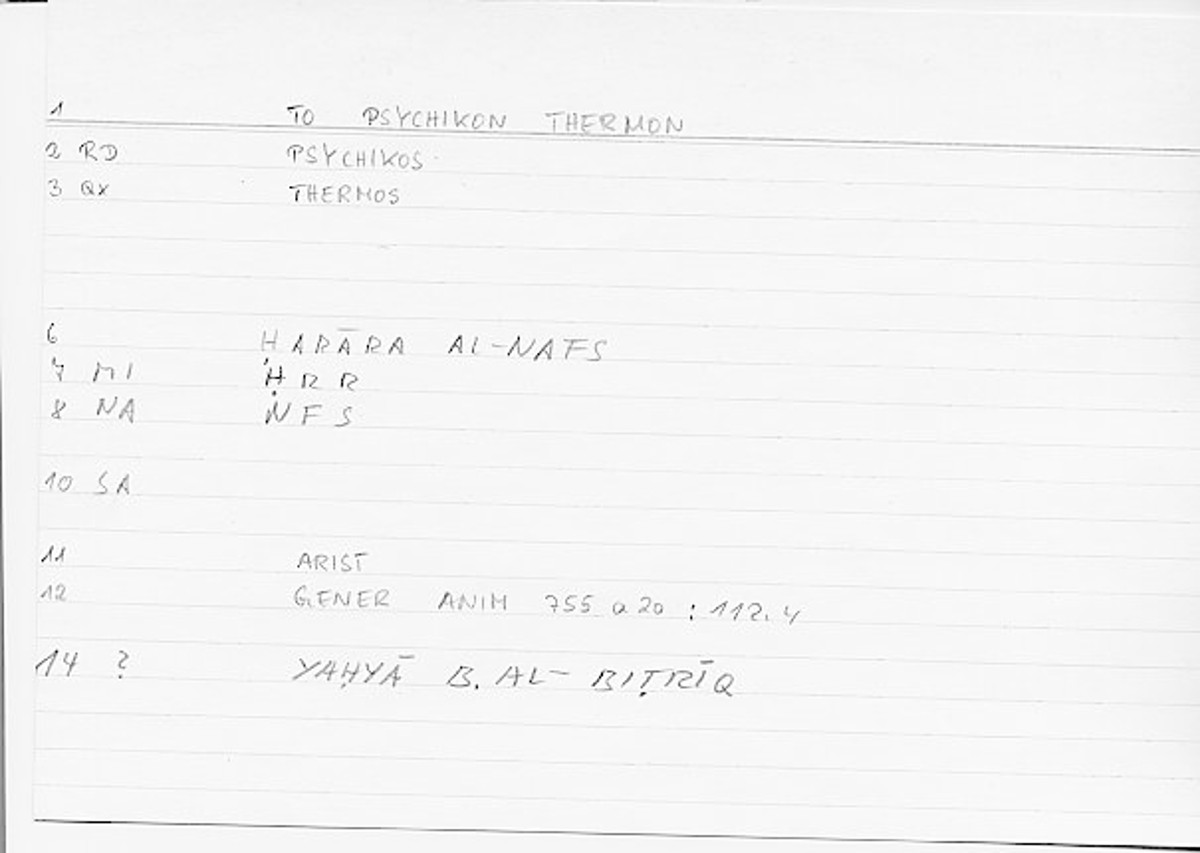 1 TO PSYCHIKON THERMON
2 RD PSYCHIKOS
3 QX THERMOS
6 ḤARĀRA AL-NAFS
7 MI ḤRR
8 NA NFS
10 SA
11 ARIST
12 GENER ANIM 755 a 20 : 112.4
14 ? YAḤYĀ B. AL-BIṬRĪQ